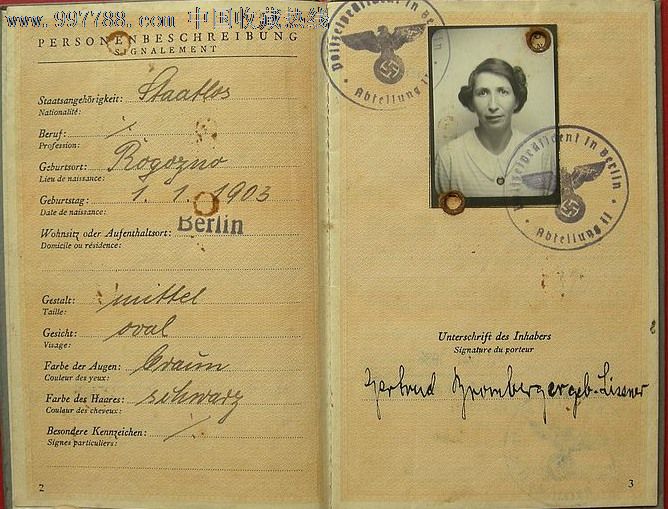 www.997788.com 中国收藏热线
PERSONENBESCHREIBUNG
SIGNALEMENT
Staatsangehörigkeit: Staatlos
Nationalité:
Beruf: /.
Profession:
Geburtsort: Rogozno
Lieu de naissance:
Geburtstag: 1. 1. 1903
Date de naissance:
Berlin
Wohnsitz oder Aufenthaltsort:
Domicile ou résidence:
Gestalt: mittel
Taille:
Gesicht: oval
Visage:
Farbe der Augen: braun
Couleur des yeux:
Farbe des Haares: schwarz
Couleur des cheveux:
Besondere Kennzeichen: /.
Signes particuliers:
2
Polizeipräsident in Berlin
Abteilung II
Polizeipräsident in Berlin
Abteilung II
Unterschrift des Inhabers
Signature du porteur
Gertrud Bromberger geb. Lissner
3